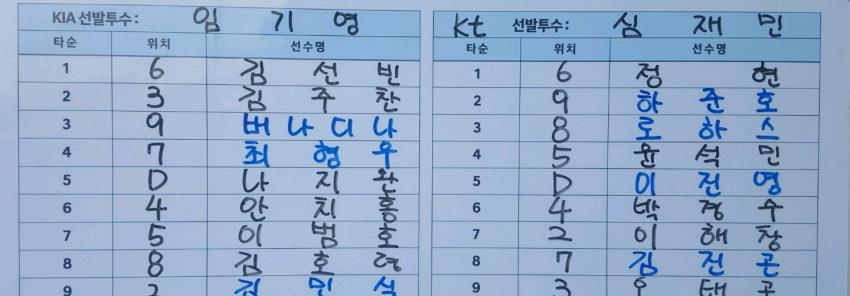 KIA 선발투수: 임 기 영
타순 위치 선수명
1 6 김 선 빈
2 3 김 주 찬
3 9 버 나 디 나
4 7 최 형 우
5 D 나 지 완
6 4 안 치 홍
7 5 이 범 호
8 8 김 호 령
9 2 김 민 식
kt 선발투수: 심 재 민
타순 위치 선수명
1 6 정 현
2 9 하 준 호
3 8 로 하 스
4 5 윤 석 민
5 D 이 진 영
6 4 박 경 수
7 2 이 해 창
8 7 김 진 곤
9 3 오 태 곤